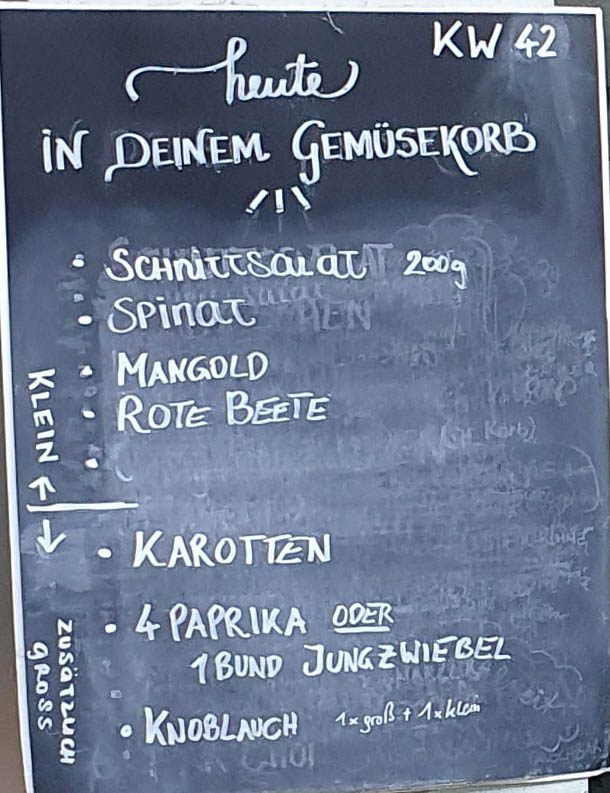 KW 42
heute
IN DEINEM GEMÜSEKORB
!
• SCHNITTSALAT 200g
• SPINAT
• MANGOLD
• ROTE BEETE
•
KLEIN ←
→ ZUSÄTZLICH GROSS
• KAROTTEN
• 4 PAPRIKA ODER
1 BUND JUNGZWIEBEL
• KNOBLAUCH 1x groß + 1x klein